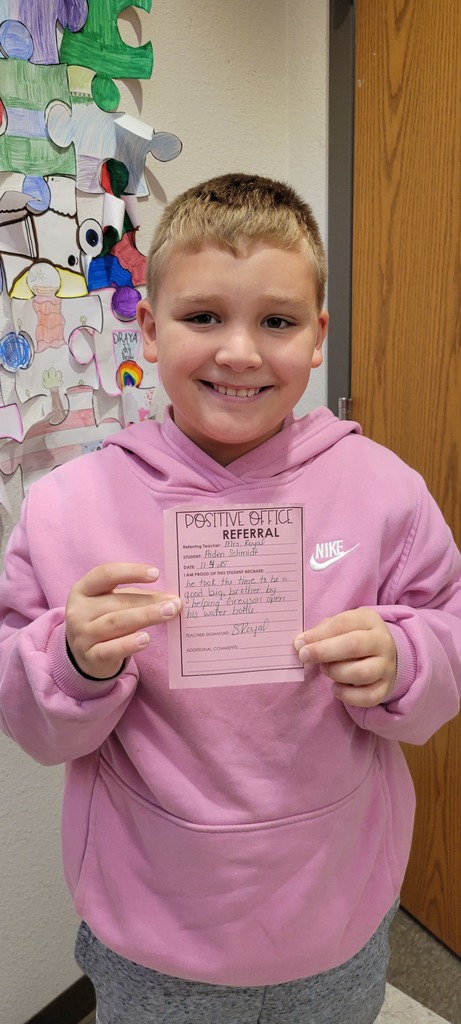 DRAYA
POSITIVE OFFICE
REFERRAL
Referring Teacher: Mrs. Royal
STUDENT: Aiden Schmidt
DATE: 11.4.25
I AM PROUD OF THIS STUDENT BECAUSE:
he took the time to be a
good big brother by
helping Greyson open
his water bottle.
TEACHER SIGNATURE: SRoyal
ADDITIONAL COMMENTS:
NIKE